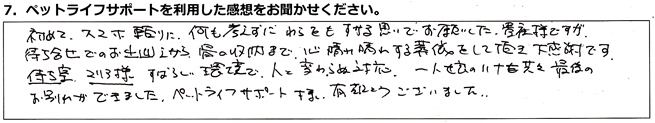 7. ペットライフサポートを利用した感想をお聞かせください。
初めて、スマホ頼りに、何も考えずにわらをもすがる思いでお願いした、貴社様ですが、
待ち合せでのお出迎えから、骨の収納まで、心晴れ晴れする葬儀をして頂き大感謝です。
待ち室、より様 すばらしい環境で、人と変わらぬ対応、一人
最後の
お別れができました。ペットライフサポート様、有難とうございました。